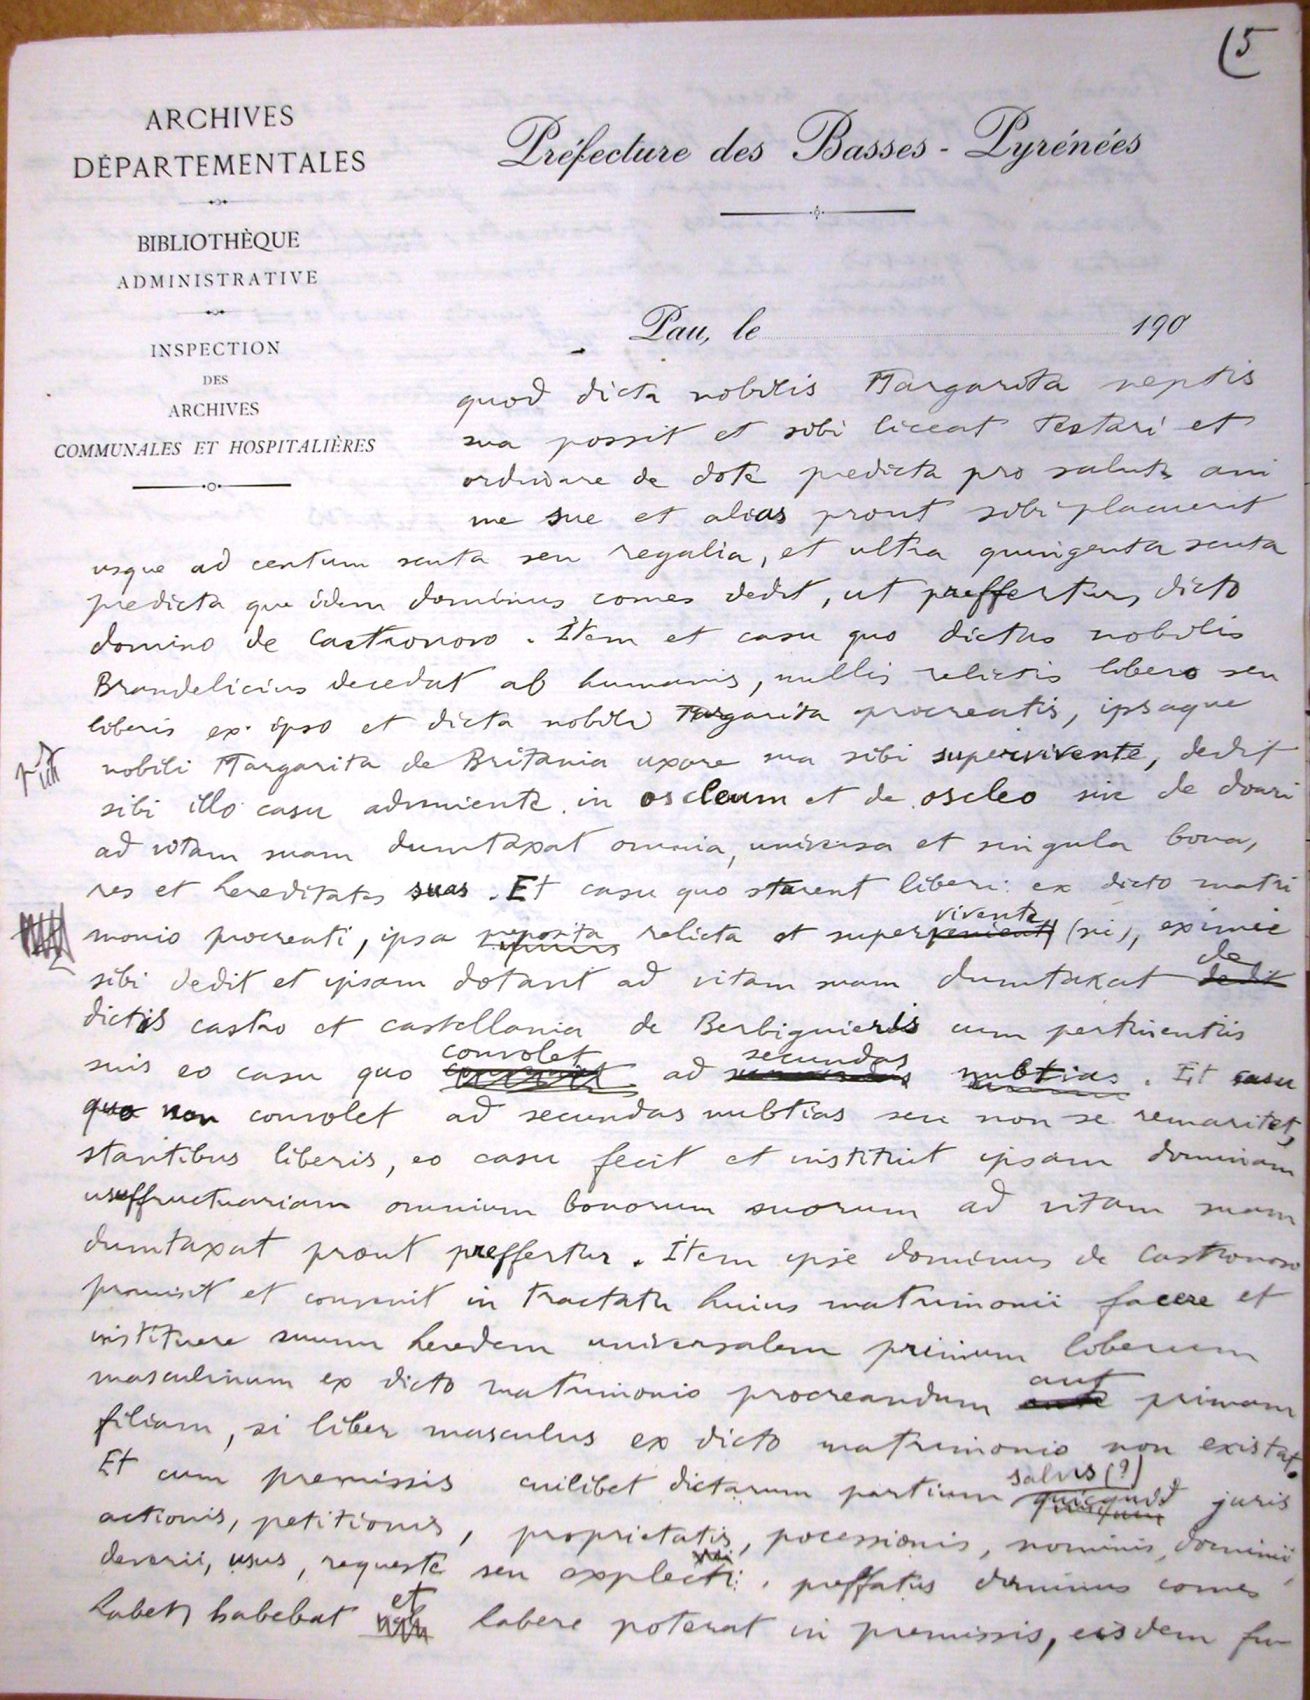 5
ARCHIVES
DÉPARTEMENTALES
BIBLIOTHÈQUE
ADMINISTRATIVE
INSPECTION
DES
ARCHIVES
COMMUNALES ET HOSPITALIÈRES
Préfecture des Basses-Pyrénées
Pau, le 190
quod dicta nobilis Margarita neptis
sua possit et sibi liceat testari et
ordinare de dote predicta pro salute ani
me sue et alias prout sibi placuerit
usque ad centum scuta seu regalia, et ultra quingenta scuta
predicta que idem dominus comes dedit, ut preffertur, dicto
domino de Castronovo. Item et casu quo dictus nobilis
Brandelicius decedat ab humanis, nullis relictis libero seu
liberis ex ipso et dicta nobili Margarita procreatis, ipsaque
nobili Margarita de Britania uxore sua sibi supervivente, dedit
sibi illo casu adveniente in oscleum et de oscleo sive de doari
ad vitam suam dumtaxat omnia, universa et singula bona,
res et hereditates suas. Et casu quo starent liberi ex dicto matri
monio procreati, ipsa preposita relicta et supervivente (sic),
sibi dedit et ipsam dotavit ad vitam suam dumtaxat de dedit
dictis castro et castellania de Berbiguieris cum pertinentiis
suis eo casu quo convolet ad secundas nubtias. Et casu
quo non convolet ad secundas nubtias seu non se remaritet,
stantibus liberis, eo casu fecit et instituit ipsam dominam
usuffructuariam omnium bonorum suorum ad vitam suam
dumtaxat prout preffertur. Item ipse dominus de Castronovo
promisit et convenit in tractatu huius matrimonii facere et
instituere suum heredem universalem primum liberum
masculinum ex dicto matrimonio procreandum aut primam
filiam, si liber masculus ex dicto matrimonio non existat.
Et cum premissis cuilibet dictarum partium salvis (?) quicquid juris
actionis, petitionis, proprietatis, pocessionis, nominis, dominii,
deverii, usus, requeste seu explecti, preffatus dominus comes
habet, habebat et habere poterat in premissis, eisdem fu